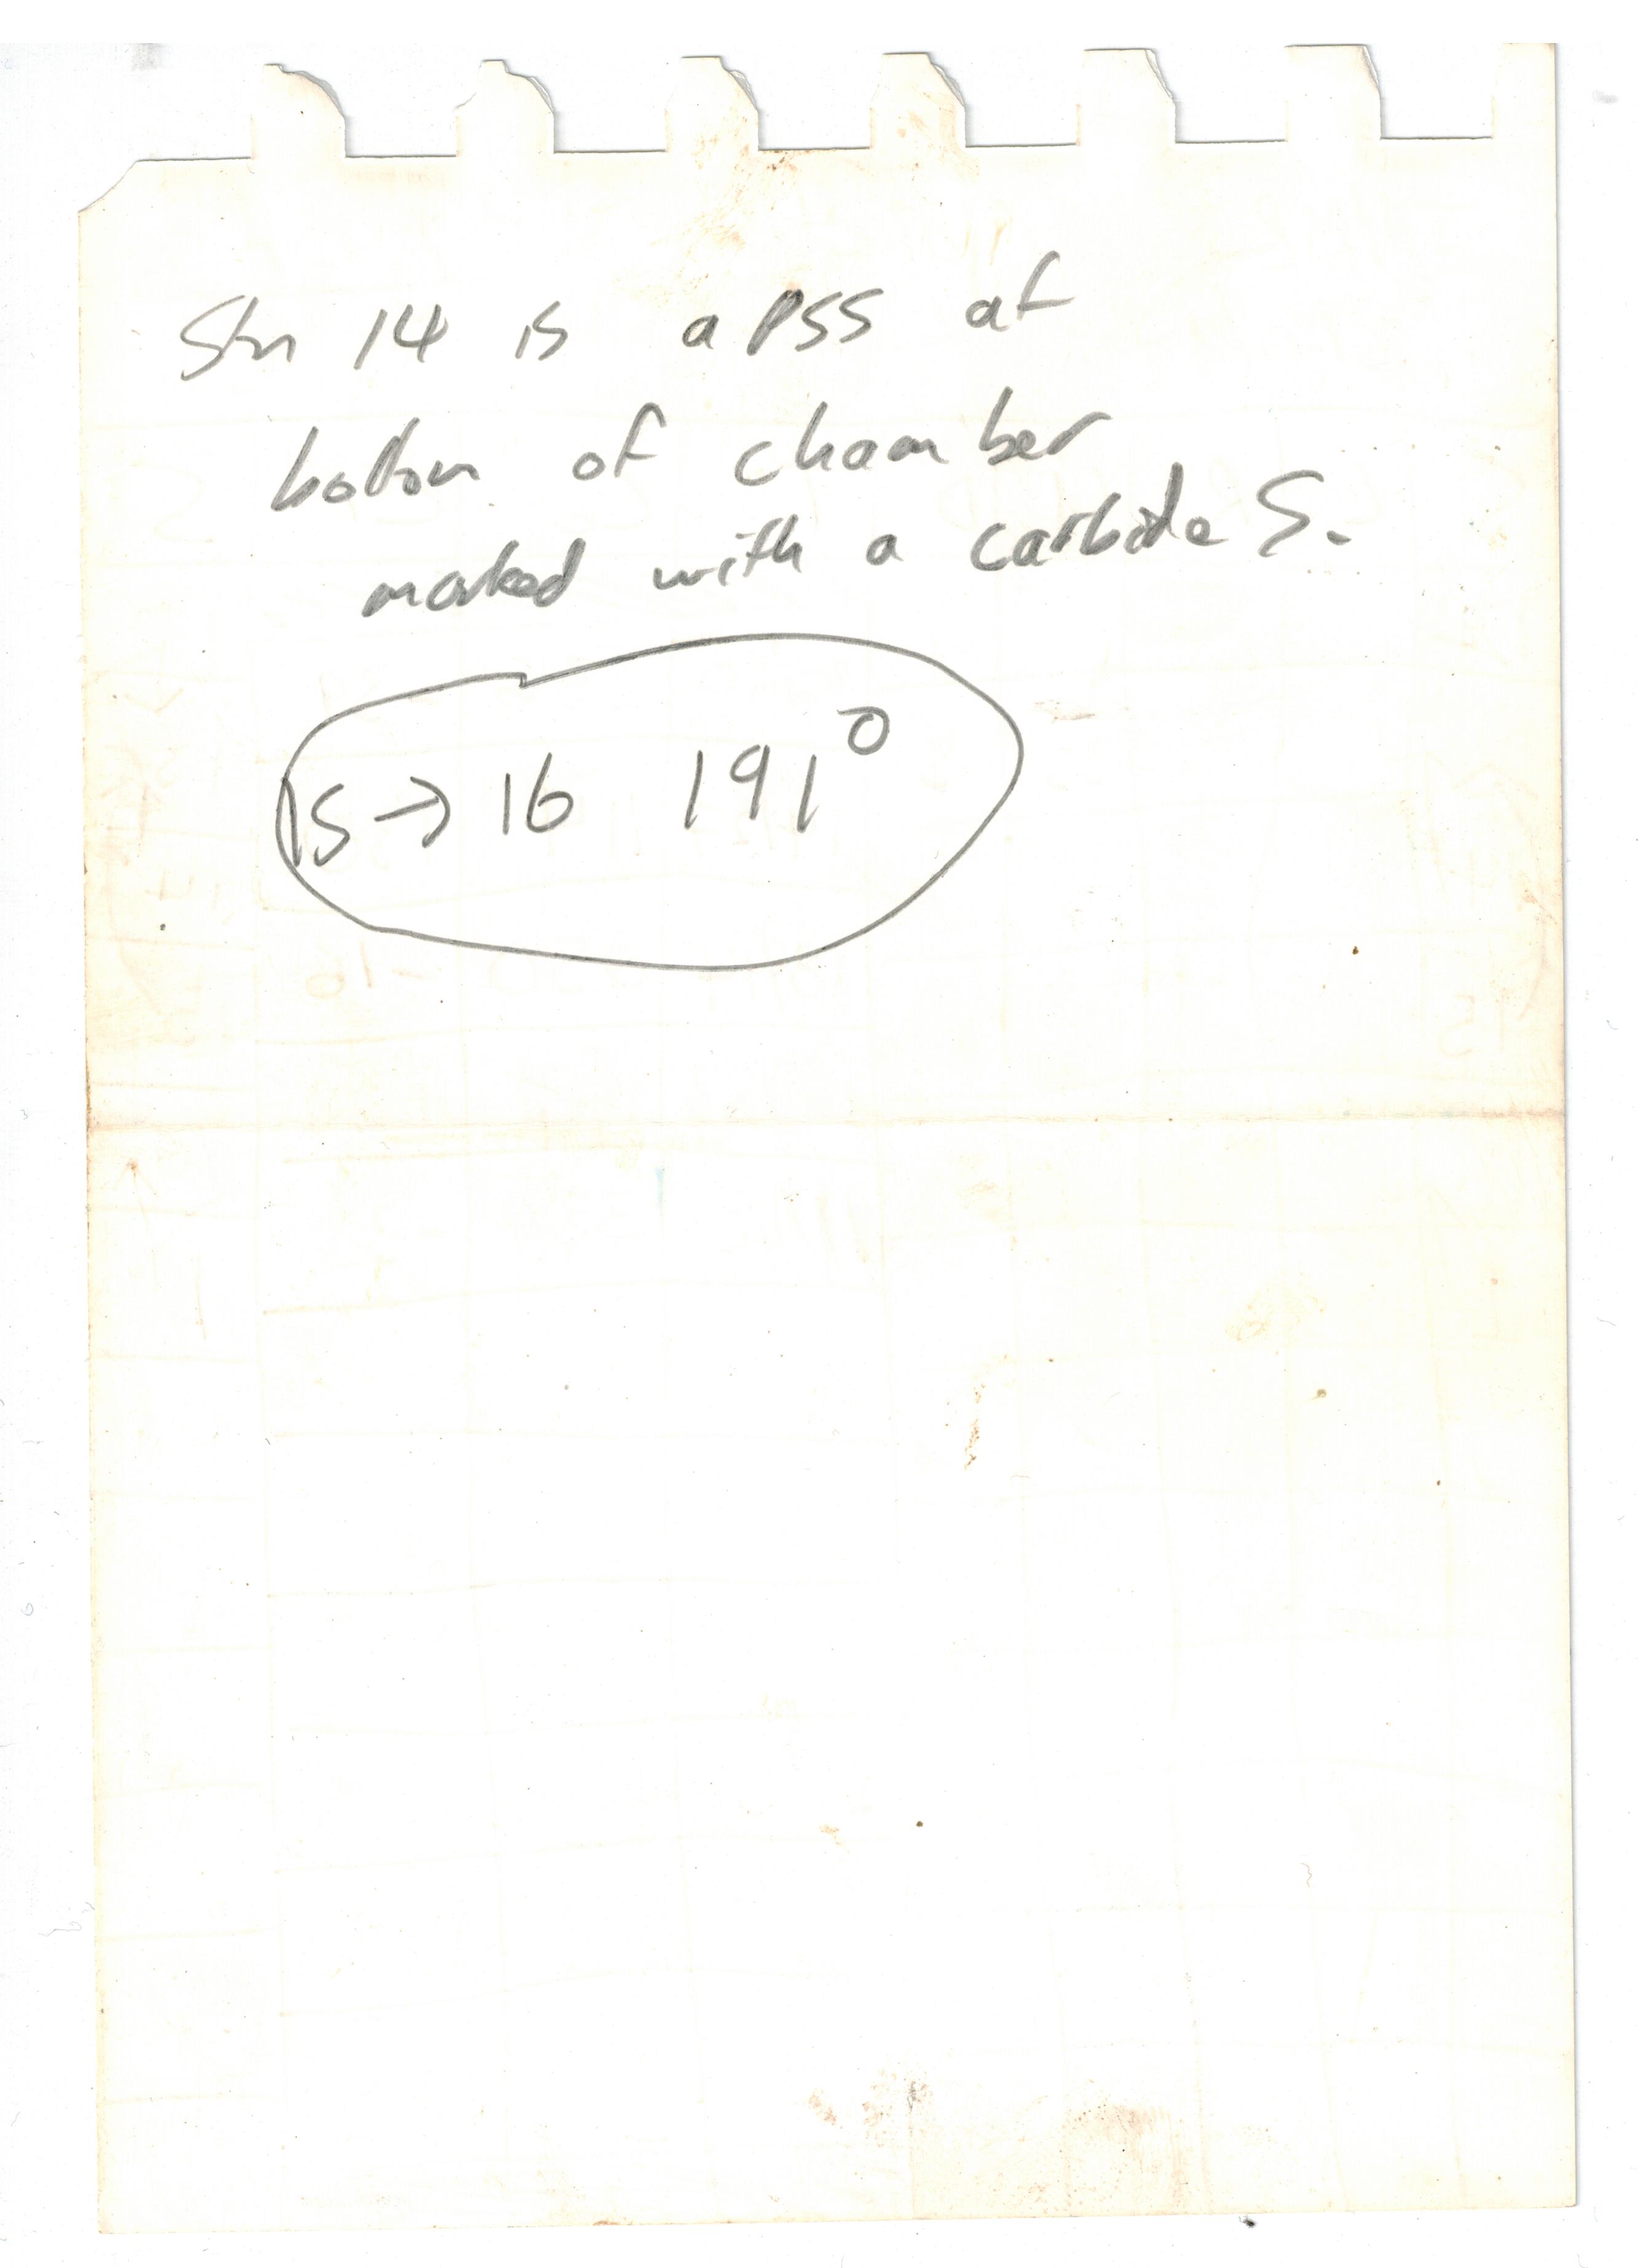 Stn 14 is a PSS at
bottom of chamber
marked with a carbide S.
15 → 16 191°